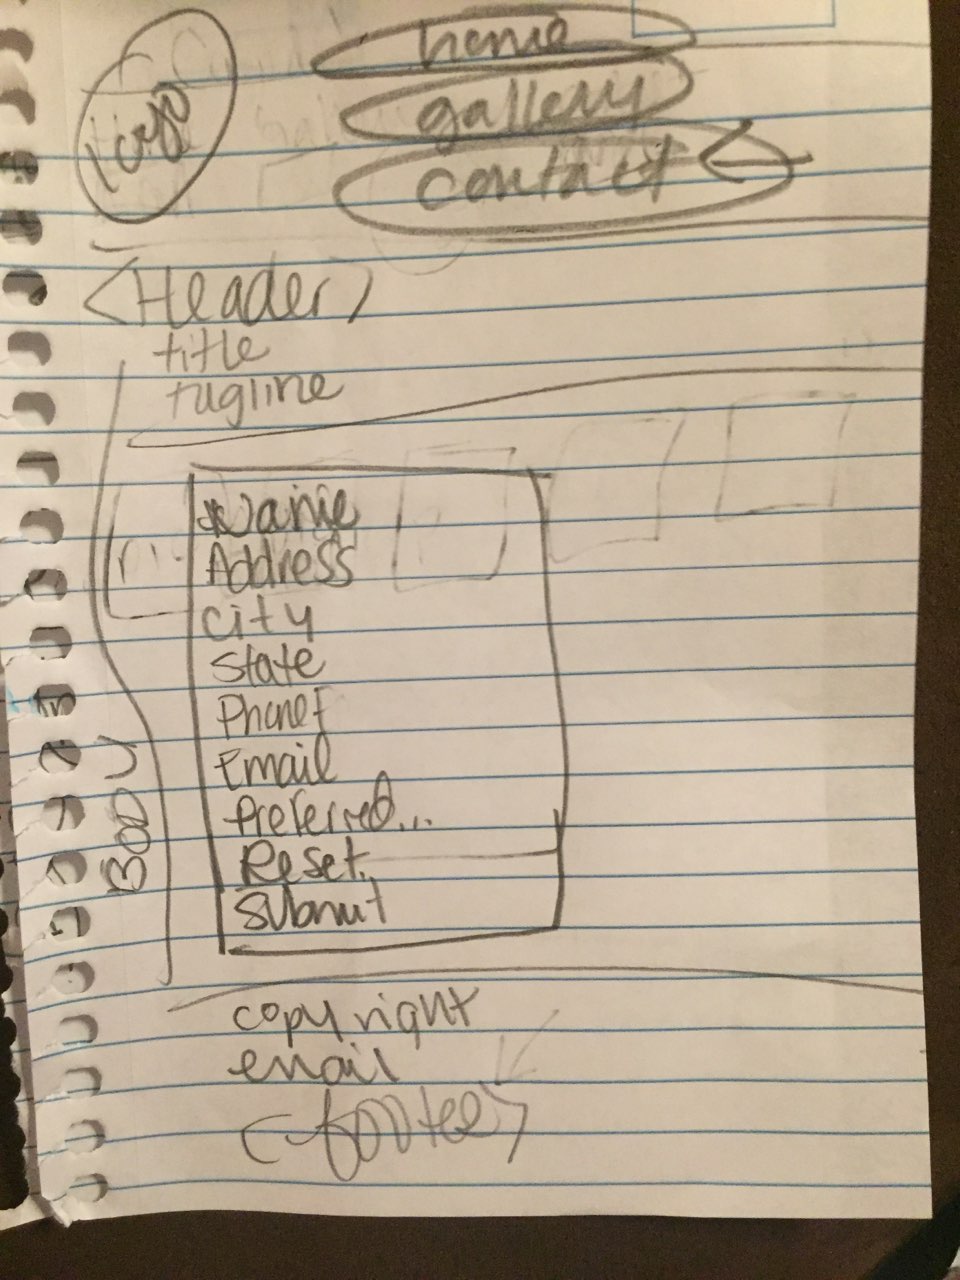 logo
home
gallery
contact
<Header>
title
tagline
Name
Address
city
state
Phone#
Email
Preferred...
Reset
Submit
Body
copyright
email
<footer>